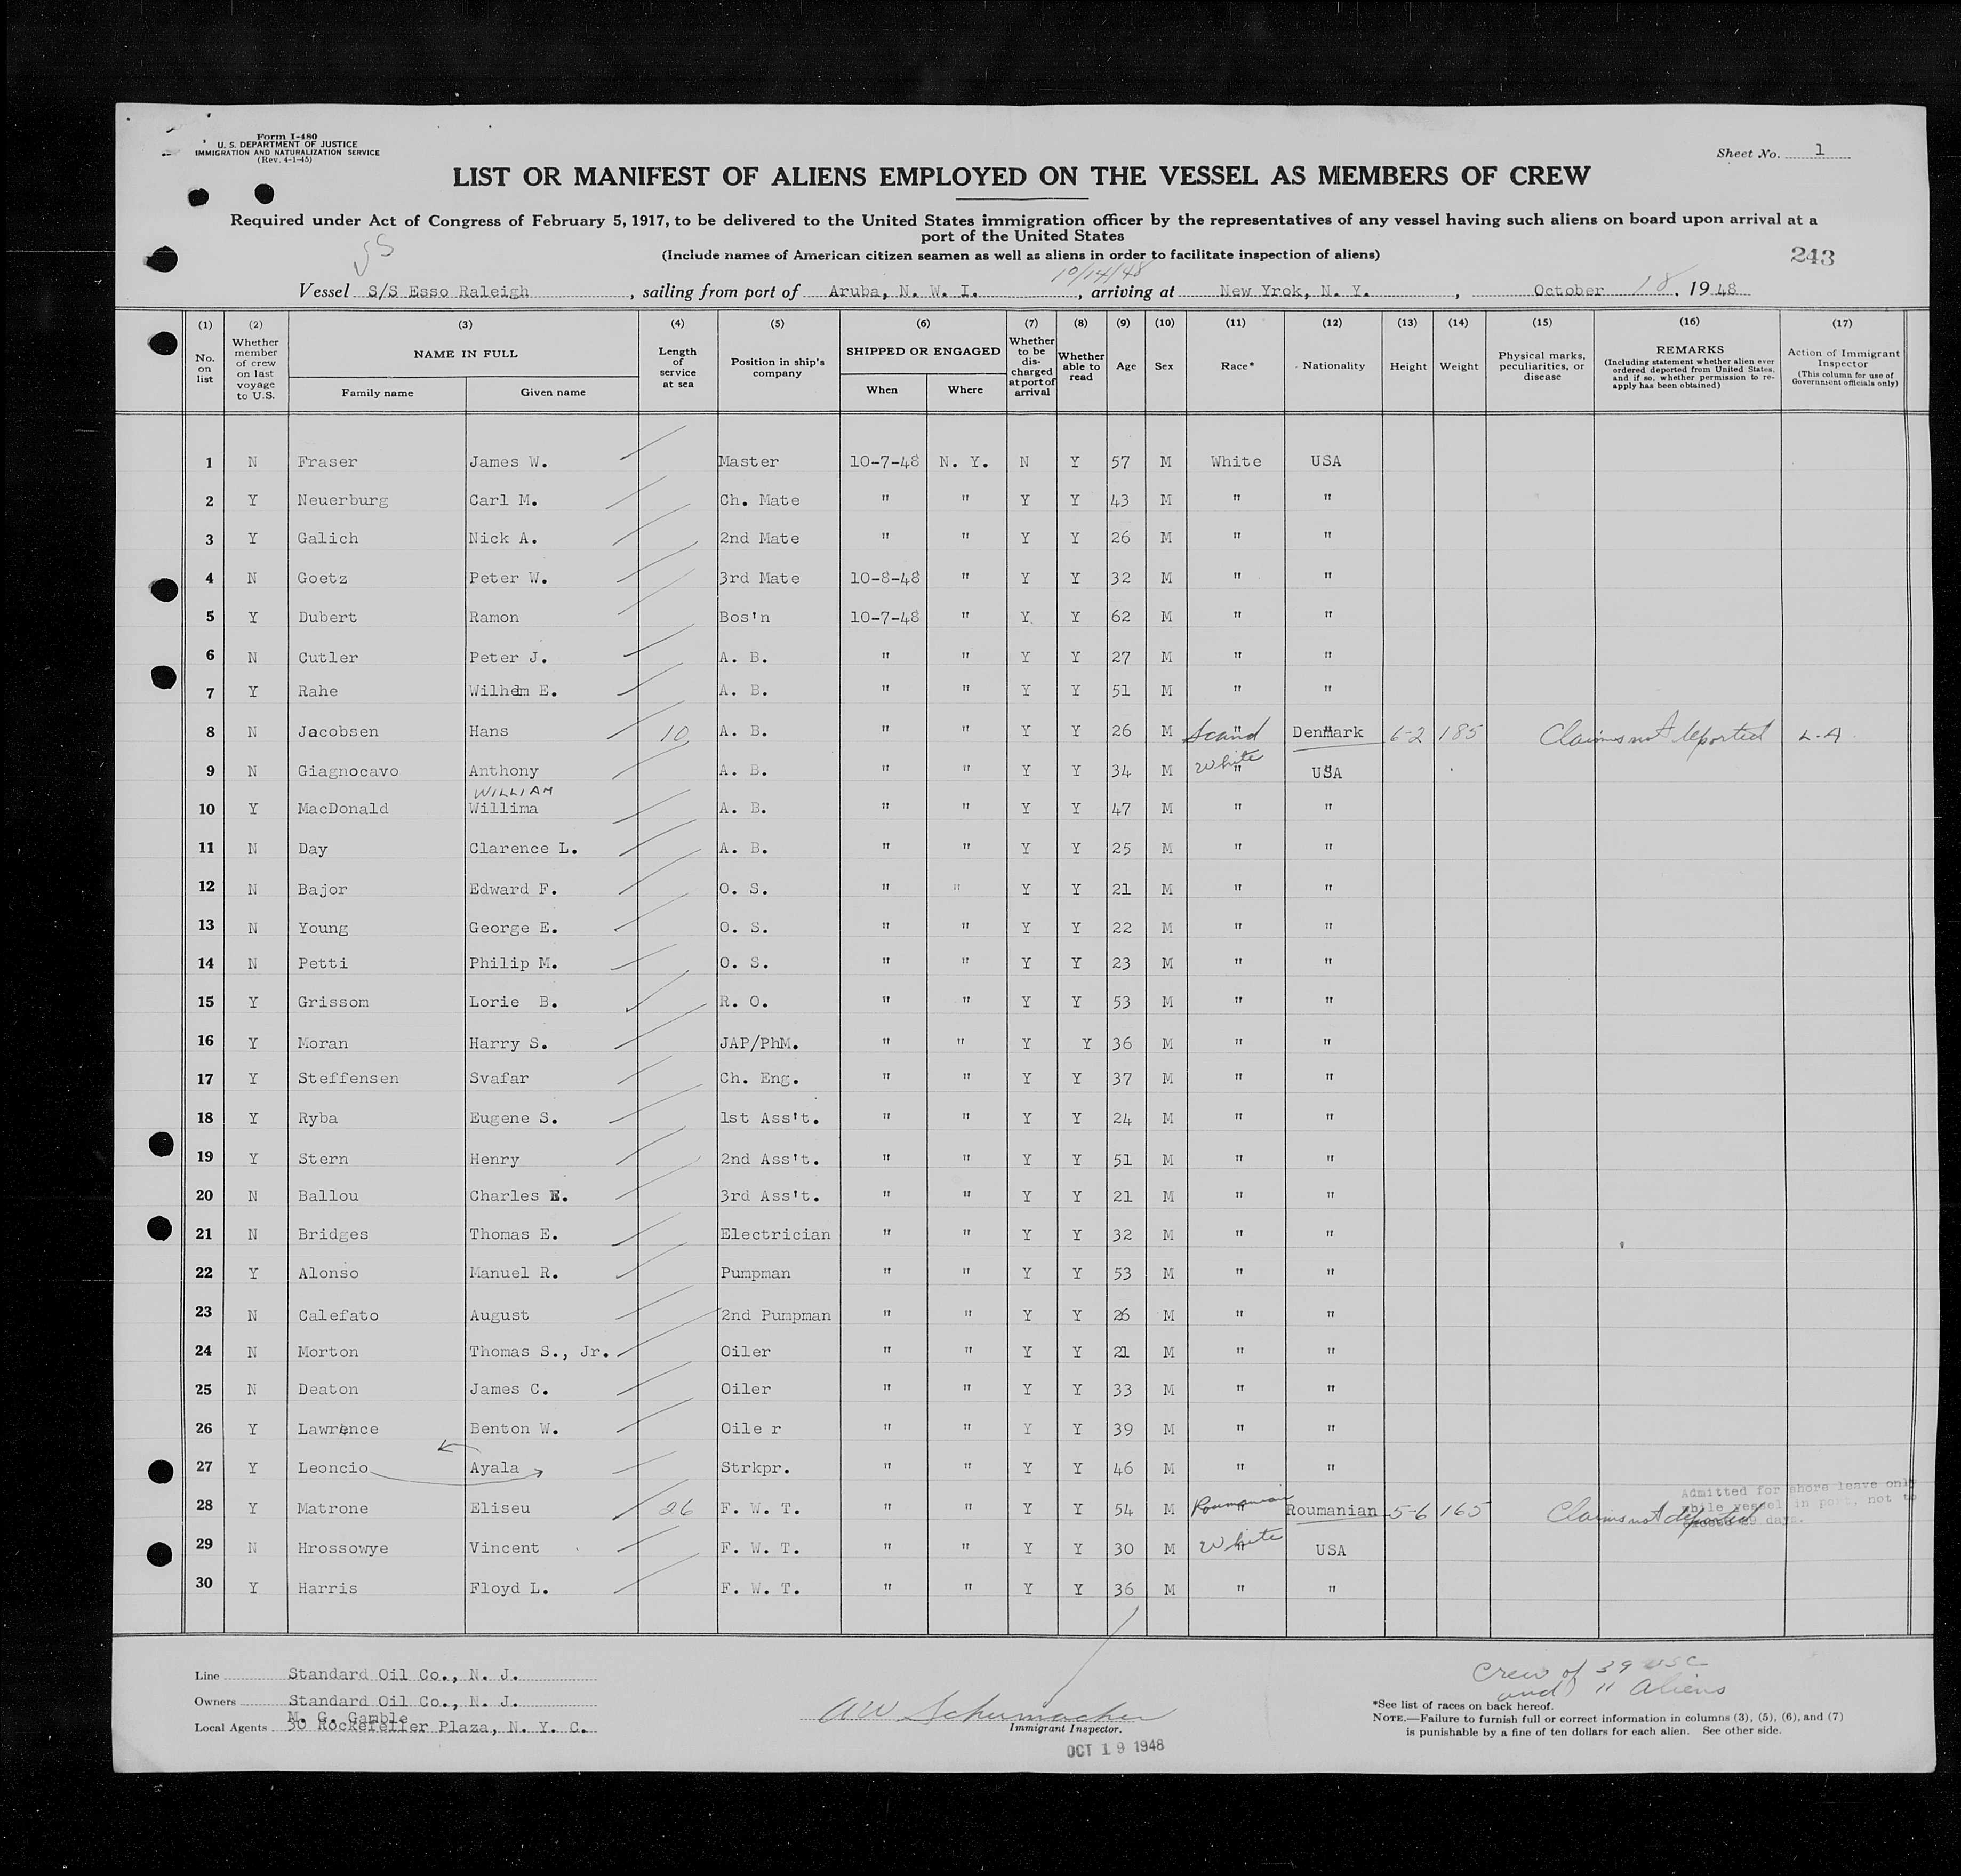 Form I-480
U. S. DEPARTMENT OF JUSTICE
IMMIGRATION AND NATURALIZATION SERVICE
(Rev. 4-1-45)
Sheet No. 1
LIST OR MANIFEST OF ALIENS EMPLOYED ON THE VESSEL AS MEMBERS OF CREW
Required under Act of Congress of February 5, 1917, to be delivered to the United States immigration officer by the representatives of any vessel having such aliens on board upon arrival at a
port of the United States
SS
(Include names of American citizen seamen as well as aliens in order to facilitate inspection of aliens)
243
10/14/48
Vessel S/S Esso Raleigh, sailing from port of Aruba, N. W. I., arriving at New Yrok, N. Y., October 18, 1948
(1) (2) (3) (4) (5) (6) (7) (8) (9) (10) (11) (12) (13) (14) (15) (16) (17)
No. on list
Whether member of crew on last voyage to U.S.
NAME IN FULL
Family name
Given name
Length of service at sea
Position in ship's company
SHIPPED OR ENGAGED
When
Where
Whether to be discharged at port of arrival
Whether able to read
Age
Sex
Race*
Nationality
Height
Weight
Physical marks, peculiarities, or disease
REMARKS
(Including statement whether alien ever ordered deported from United States, and if so, whether permission to reapply has been obtained)
Action of Immigrant Inspector
(This column for use of Government officials only)
1 N Fraser James W. Master 10-7-48 N. Y. N Y 57 M White USA
2 Y Neuerburg Carl M. Ch. Mate " " Y Y 43 M " "
3 Y Galich Nick A. 2nd Mate " " Y Y 26 M " "
4 N Goetz Peter W. 3rd Mate 10-8-48 " Y Y 32 M " "
5 Y Dubert Ramon Bos'n 10-7-48 " Y Y 62 M " "
6 N Cutler Peter J. A. B. " " Y Y 27 M " "
7 Y Rahe Wilhem E. A. B. " " Y Y 51 M " "
8 N Jacobsen Hans 10 A. B. " " Y Y 26 M Scand Denmark 6-2 185 Claims not deported L-A
9 N Giagnocavo Anthony A. B. " " Y Y 34 M White USA
WILLIAM
10 Y MacDonald Willima A. B. " " Y Y 47 M " "
11 N Day Clarence L. A. B. " " Y Y 25 M " "
12 N Bajor Edward F. O. S. " " Y Y 21 M " "
13 N Young George E. O. S. " " Y Y 22 M " "
14 N Petti Philip M. O. S. " " Y Y 23 M " "
15 Y Grissom Lorie B. R. O. " " Y Y 53 M " "
16 Y Moran Harry S. JAP/PhM. " " Y Y 36 M " "
17 Y Steffensen Svafar Ch. Eng. " " Y Y 37 M " "
18 Y Ryba Eugene S. 1st Ass't. " " Y Y 24 M " "
19 Y Stern Henry 2nd Ass't. " " Y Y 51 M " "
20 N Ballou Charles E. 3rd Ass't. " " Y Y 21 M " "
21 N Bridges Thomas E. Electrician " " Y Y 32 M " "
22 Y Alonso Manuel R. Pumpman " " Y Y 53 M " "
23 N Calefato August 2nd Pumpman " " Y Y 26 M " "
24 N Morton Thomas S., Jr. Oiler " " Y Y 21 M " "
25 N Deaton James C. Oiler " " Y Y 33 M " "
26 Y Lawrence Benton W. Oile r " " Y Y 39 M " "
27 Y Leoncio Ayala Strkpr. " " Y Y 46 M " "
Admitted for shore leave only
while vessel in port, not to
28 Y Matrone Eliseu 26 F. W. T. " " Y Y 54 M Roumanian Roumanian 5-6 165 Claims not deported
exceed 29 days.
29 N Hrossowye Vincent F. W. T. " " Y Y 30 M White USA
30 Y Harris Floyd L. F. W. T. " " Y Y 36 M " "
Line Standard Oil Co., N. J.
Owners Standard Oil Co., N. J.
M. G. Gamble
Local Agents 30 Rockefeller Plaza, N. Y. C.
AW Schumacher
Immigrant Inspector.
OCT 19 1948
Crew of 39 USC
and 11 Aliens
*See list of races on back hereof.
NOTE.—Failure to furnish full or correct information in columns (3), (5), (6), and (7)
is punishable by a fine of ten dollars for each alien. See other side.